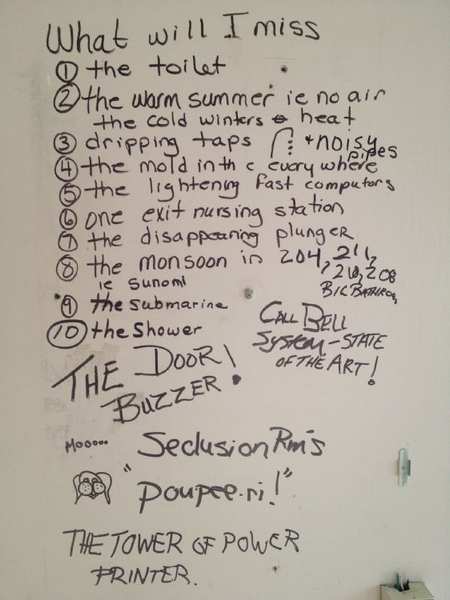 What will I miss
① the toilet
② the warm summer ie no air
the cold winters heat
③ dripping taps + noisy pipes
④ the mold in the every where
⑤ the lightening fast computors
⑥ one exit nursing station
⑦ the disappearing plunger
⑧ the monsoon in 204, 211, 210, 208
ie sunomi BIG BATHROOM
⑨ the submarine
⑩ the Shower
CALL BELL
SYSTEM - STATE
OF THE ART!
THE DOOR!
BUZZER!
Moo....
Seclusion Rm's
"Poupee.ri!"
THE TOWER OF POWER
PRINTER.